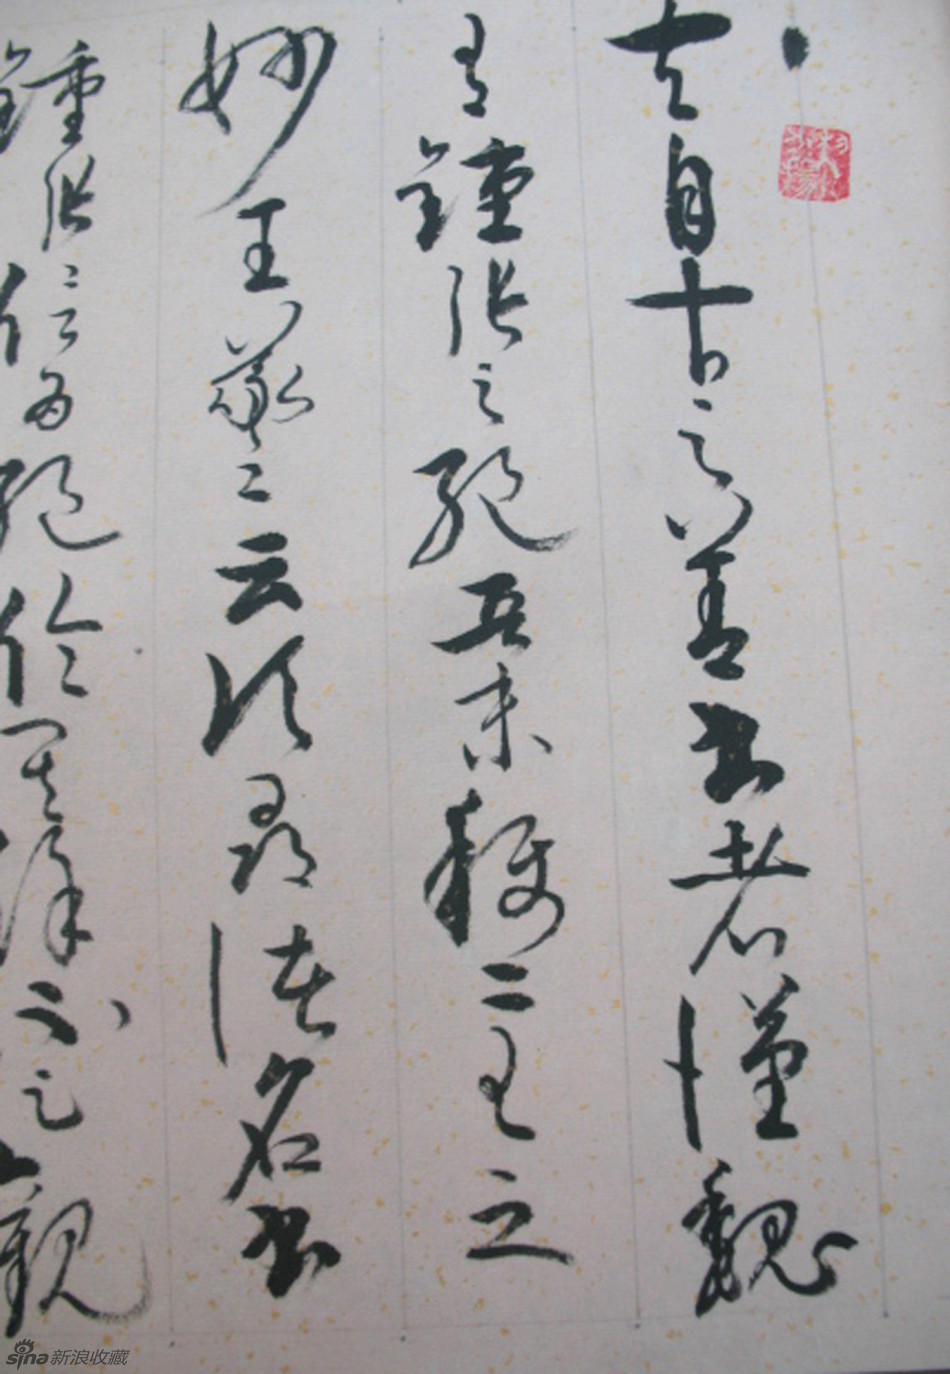 夫自古之善書者漢魏
有鍾張之絕晉末稱二王之
妙王羲之云頃尋諸名書
鍾張信為絕倫其餘不足觀
sina新浪收藏